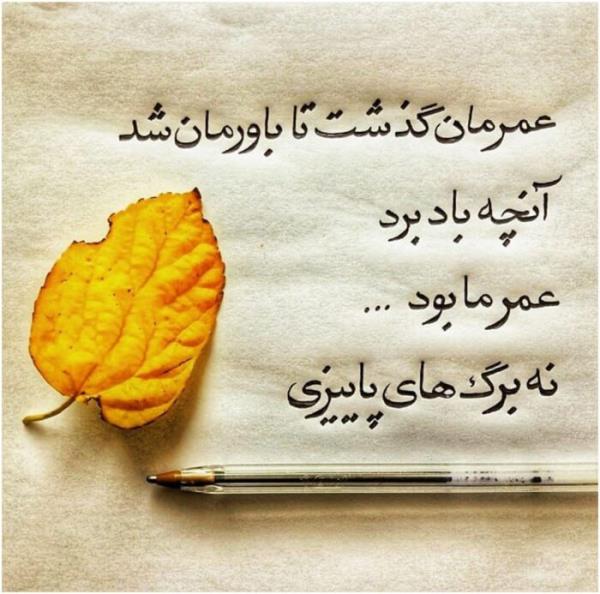 عمرمان گذشت تا باورمان شد
آنچه باد برد
عمر ما بود ...
نه برگ های پاییزی